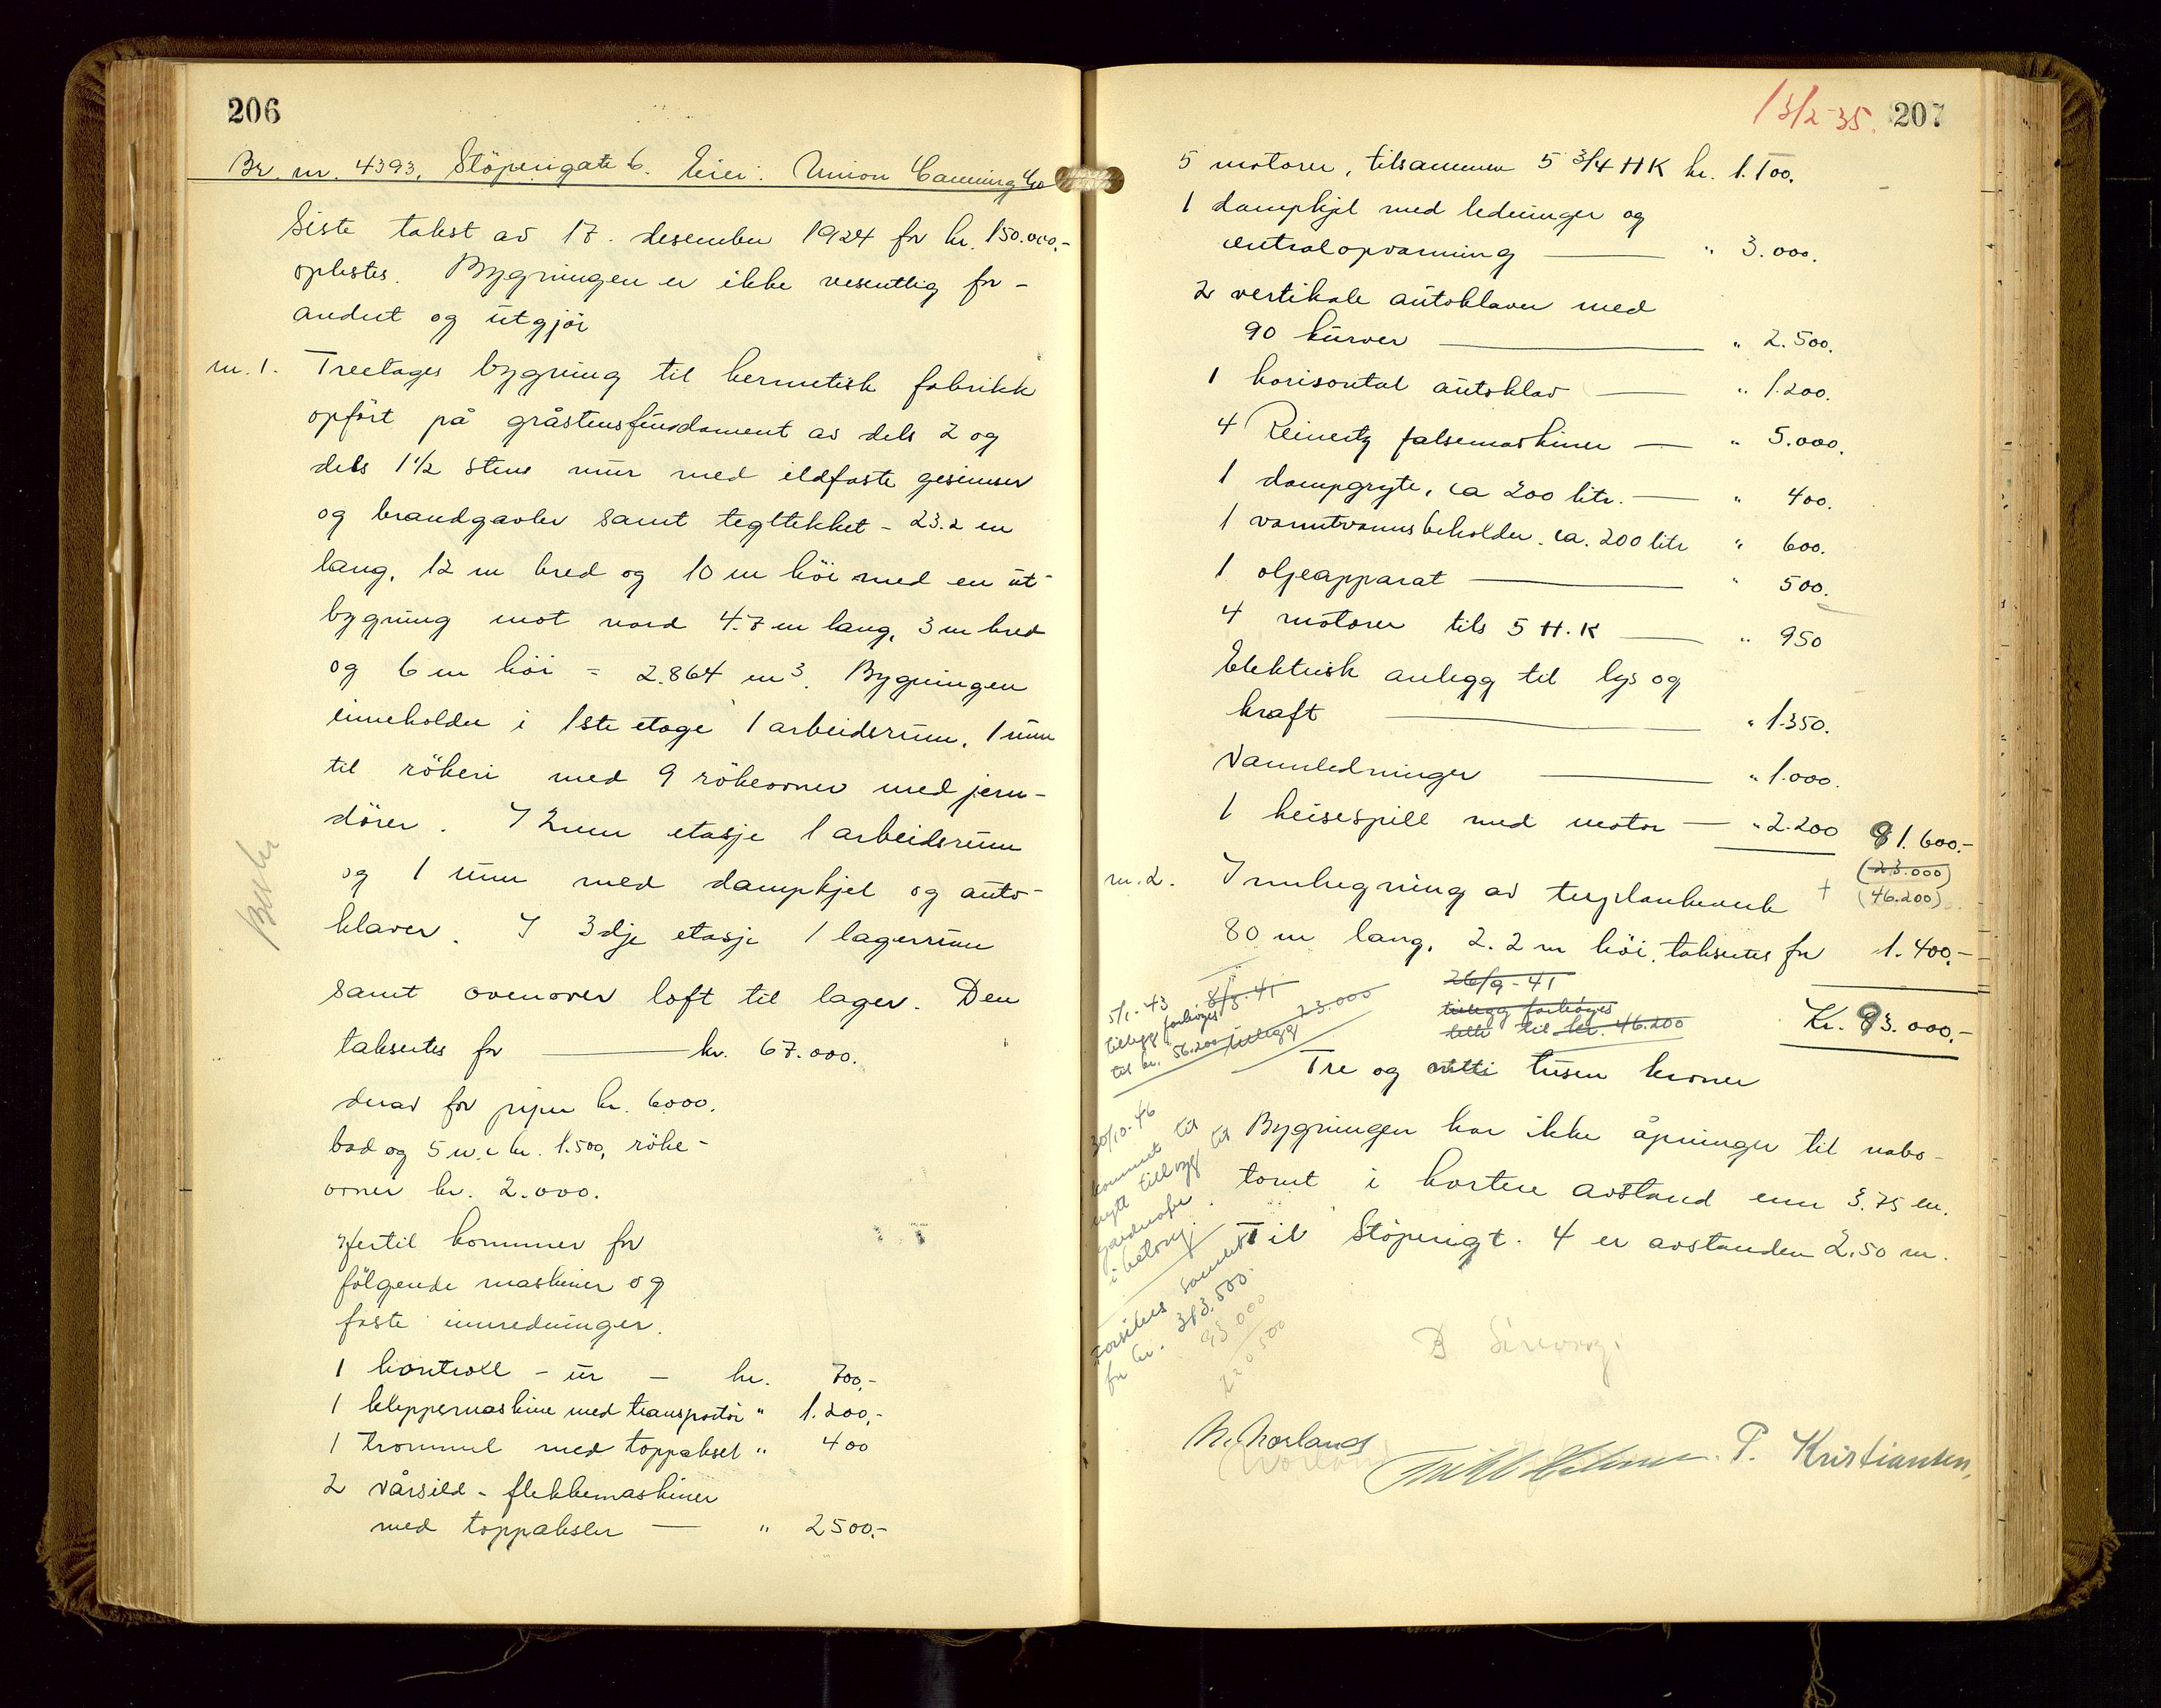 206
Br. nr. 4393, Stöperigate 6. Eier: Union Canning Co
Siste takst av 17. desember 1924 for kr. 150.000.-
oplestes. Bygningen er ikke vesentlig for-
andret og utgjör
nr. 1. Treetages bygning til hermetisk fabrikk
opfört på gråstensfundament av dels 2 og
dels 1 1/2 stens mur med ildfaste gesimser
og brandgavler samt tegltekket - 23.2 m
lang, 12 m bred og 10 m höi med en ut-
bygning mot nord 4.7 m lang, 3 m bred
og 6 m höi = 2.864 m3. Bygningen
inneholder i 1ste etage 1 arbeidsrum, 1 rum
til rökeri med 9 rökeovner med jern-
dörer. I 2nen etasje 1 arbeidsrum
og 1 rum med dampkjel og auto-
klaver. I 3dje etasje 1 lagerrum
samt ovenover loft til lager. Den
taksertes for kr. 67.000.
derav for piper kr. 6000.
bad og 5 w.c kr. 1.500, röke-
ovner kr. 2.000.
Hertil kommer for
fölgende maskiner og
faste innredninger.
1 kontroll - ur - kr. 700,-
1 klippermaskine med transportör " 1.200,-
1 trommel med toppaksel " 400
2 vårsild - flekkemaskiner
med toppaksler - " 2500.-
13/2-35. 207
5 motorer, tilsammen 5 3/4 HK kr. 1.100.
1 dampkjel med ledninger og
centralopvarming " 3.000.
2 vertikale autoklaver med
90 kurver " 2.500.
1 horisontal autoklav " 1.200.
4 Reinertz falsemaskiner " 5.000.
1 dampgryte, ca 200 litr. " 400.
1 varmtvannsbeholder, ca. 200 litr " 600.
1 oljeapparat " 500.
4 motorer tils 5 H.K " 950
Elektrisk anlegg til lys og
kraft " 1.350.
Vannledninger " 1.000.
1 heisespill med motor " 2.200 91.600.-
(23.000)
+ (46.200)
nr. 2. Innhegning av treplankeverk
80 m lang, 2.2 m höi, taksertes for 1.400.-
Kr. 93.000,-
8/3-41
tillegg 23.000
26/9-41
tillegg forhöyes
til kr. 46.200
5/1-43
tillegg forhöyes
til kr. 56.200
Tre og nitti tusen kroner
Bygningen har ikke åpninger til nabo-
tomt i kortere avstand enn 3.75 m.
Til Stöperigt. 4 er avstanden 2,50 m.
30/10-46
kommet til
nytt tillegg til
i betong.
Forsikres samlet
for kr. 313.500.
93.000
220 500
N. Norland P. Kristiansen,